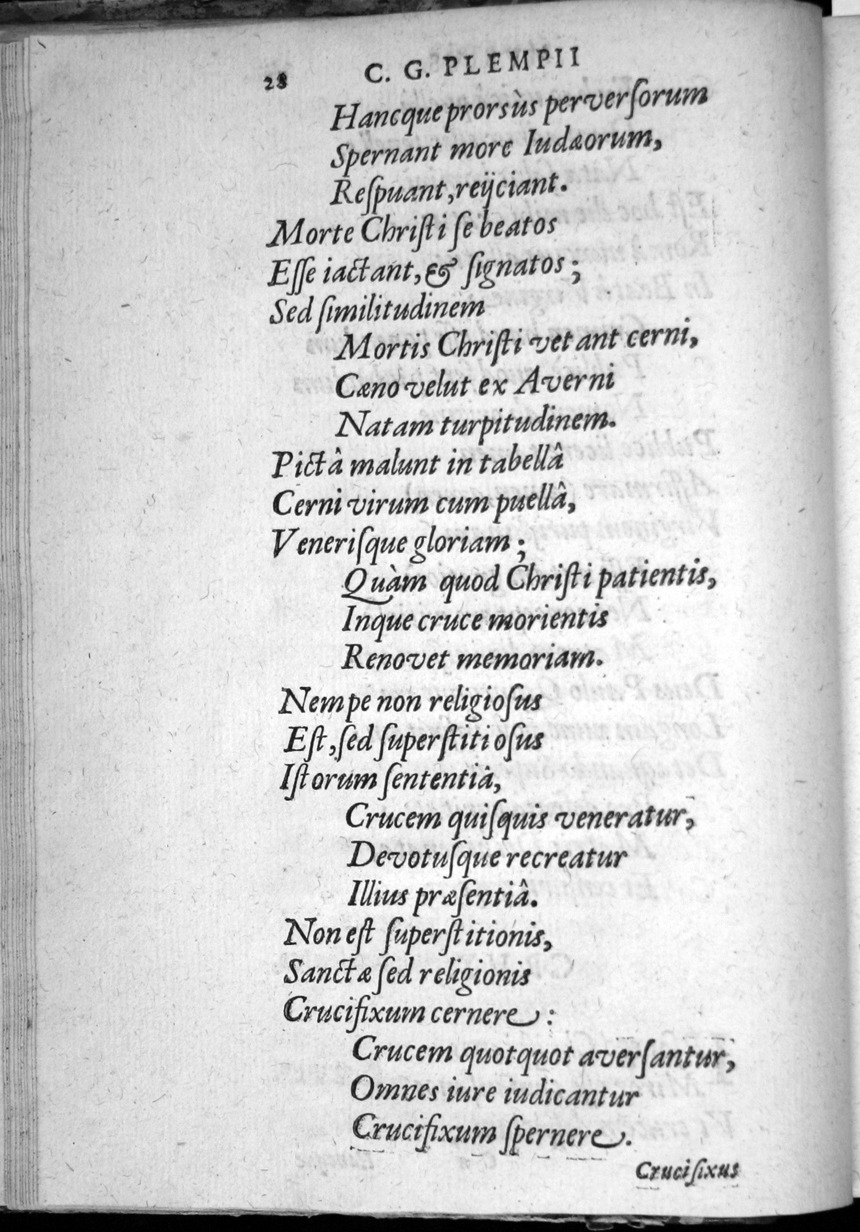 28 C. G. PLEMPII
Hancque prorsùs perverſorum
Spernant more Iudæorum,
Reſpuant, reijciant.
Morte Chriſti ſe beatos
Eſſe iactant, & ſignatos;
Sed ſimilitudinem
Mortis Chriſti vetant cerni,
Cæno velut ex Averni
Natam turpitudinem.
Pictâ malunt in tabellâ
Cerni virum cum puellâ,
Veneriſque gloriam;
Quàm quod Chriſti patientis,
Inque cruce morientis
Renovet memoriam.
Nempe non religioſus
Eſt, ſed ſuperſtitioſus
Iſtorum ſententiâ,
Crucem quiſquis veneratur,
Devotuſque recreatur
Illius præſentiâ.
Non eſt ſuperſtitionis,
Sanctæ ſed religionis
Crucifixum cernere:
Crucem quotquot averſantur,
Omnes iure iudicantur
Crucifixum ſpernere.
Cruciſixus